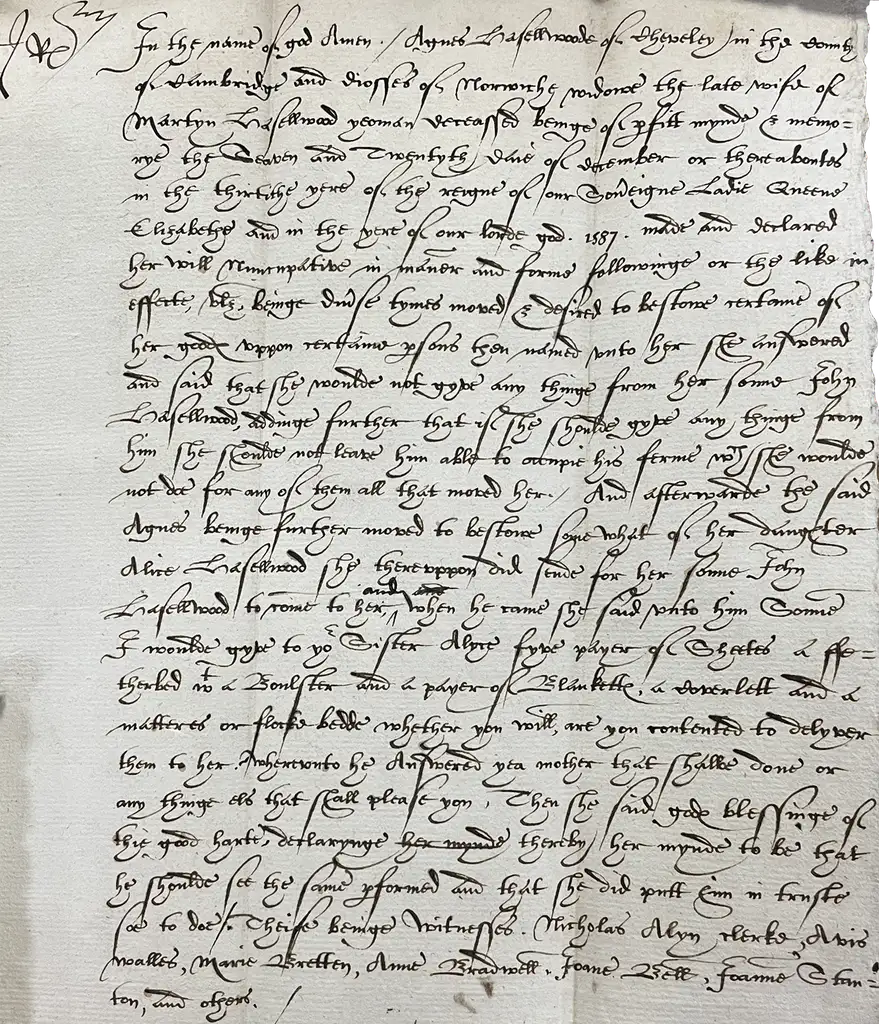 In the name of god Amen. / Agnes Hasellwoode of Cheveley in the County
of Cambridge and diosses of Norwiche widowe the late wife of
Martyn Hasellwood yeoman deceassed beinge of pfitt mynde & memo=
rye the Seaven and Twentyth daie of december or thereaboutes
in the thirtithe yere of the reigne of our Sov̄eigne Ladie Queene
Elizabethe and in the yere of our lorde god . 1587 . made and declared
her will Nuncupative in man̄er and forme followinge or the like in
effecte, vlz, beinge div̄se tymes moved & desired to bestowe certaine of
her godꝭ vppon certaine psons then named vnto her she answered
and said that she woulde not gyve any thinge from her sonne John
Hasellwood, addinge further that if she shoulde gyve any thinge from
him she shoulde not leave him able to occupie his ferme wch she woulde
not doe for any of them all that moved her. / And afterwarde the said
Agnes beinge further moved to bestowe somewhat of her daughter
Alice Hasellwood she therevppon did sende for her sonne John
Hasellwood to come to her, and when he came she said vnto him Sonne
I woulde gyve to yor Sister Alyce fyve payer of Sheetes a ffe=
therbed wt a Boulster and a payer of Blankettꝭ, a Coverlett and a
matteres or flocke bedde whether you will, are you contented to delyver
them to her. / wherevnto he Answered yea mother that shalbe done or
any thinge els that shall please you, Then she said godꝭ blessinge of
thie good harte, declarynge her mynde thereby her mynde to be that
he shoulde see the same pformed and that she did putt him in truste
soe to doe / Theise beinge witnesses. Nicholas Alyn clerke, Avis
walles, Marie Bretten, Anne Bradwell, Joane Bell, Joanne Stan=
ton, and others. /